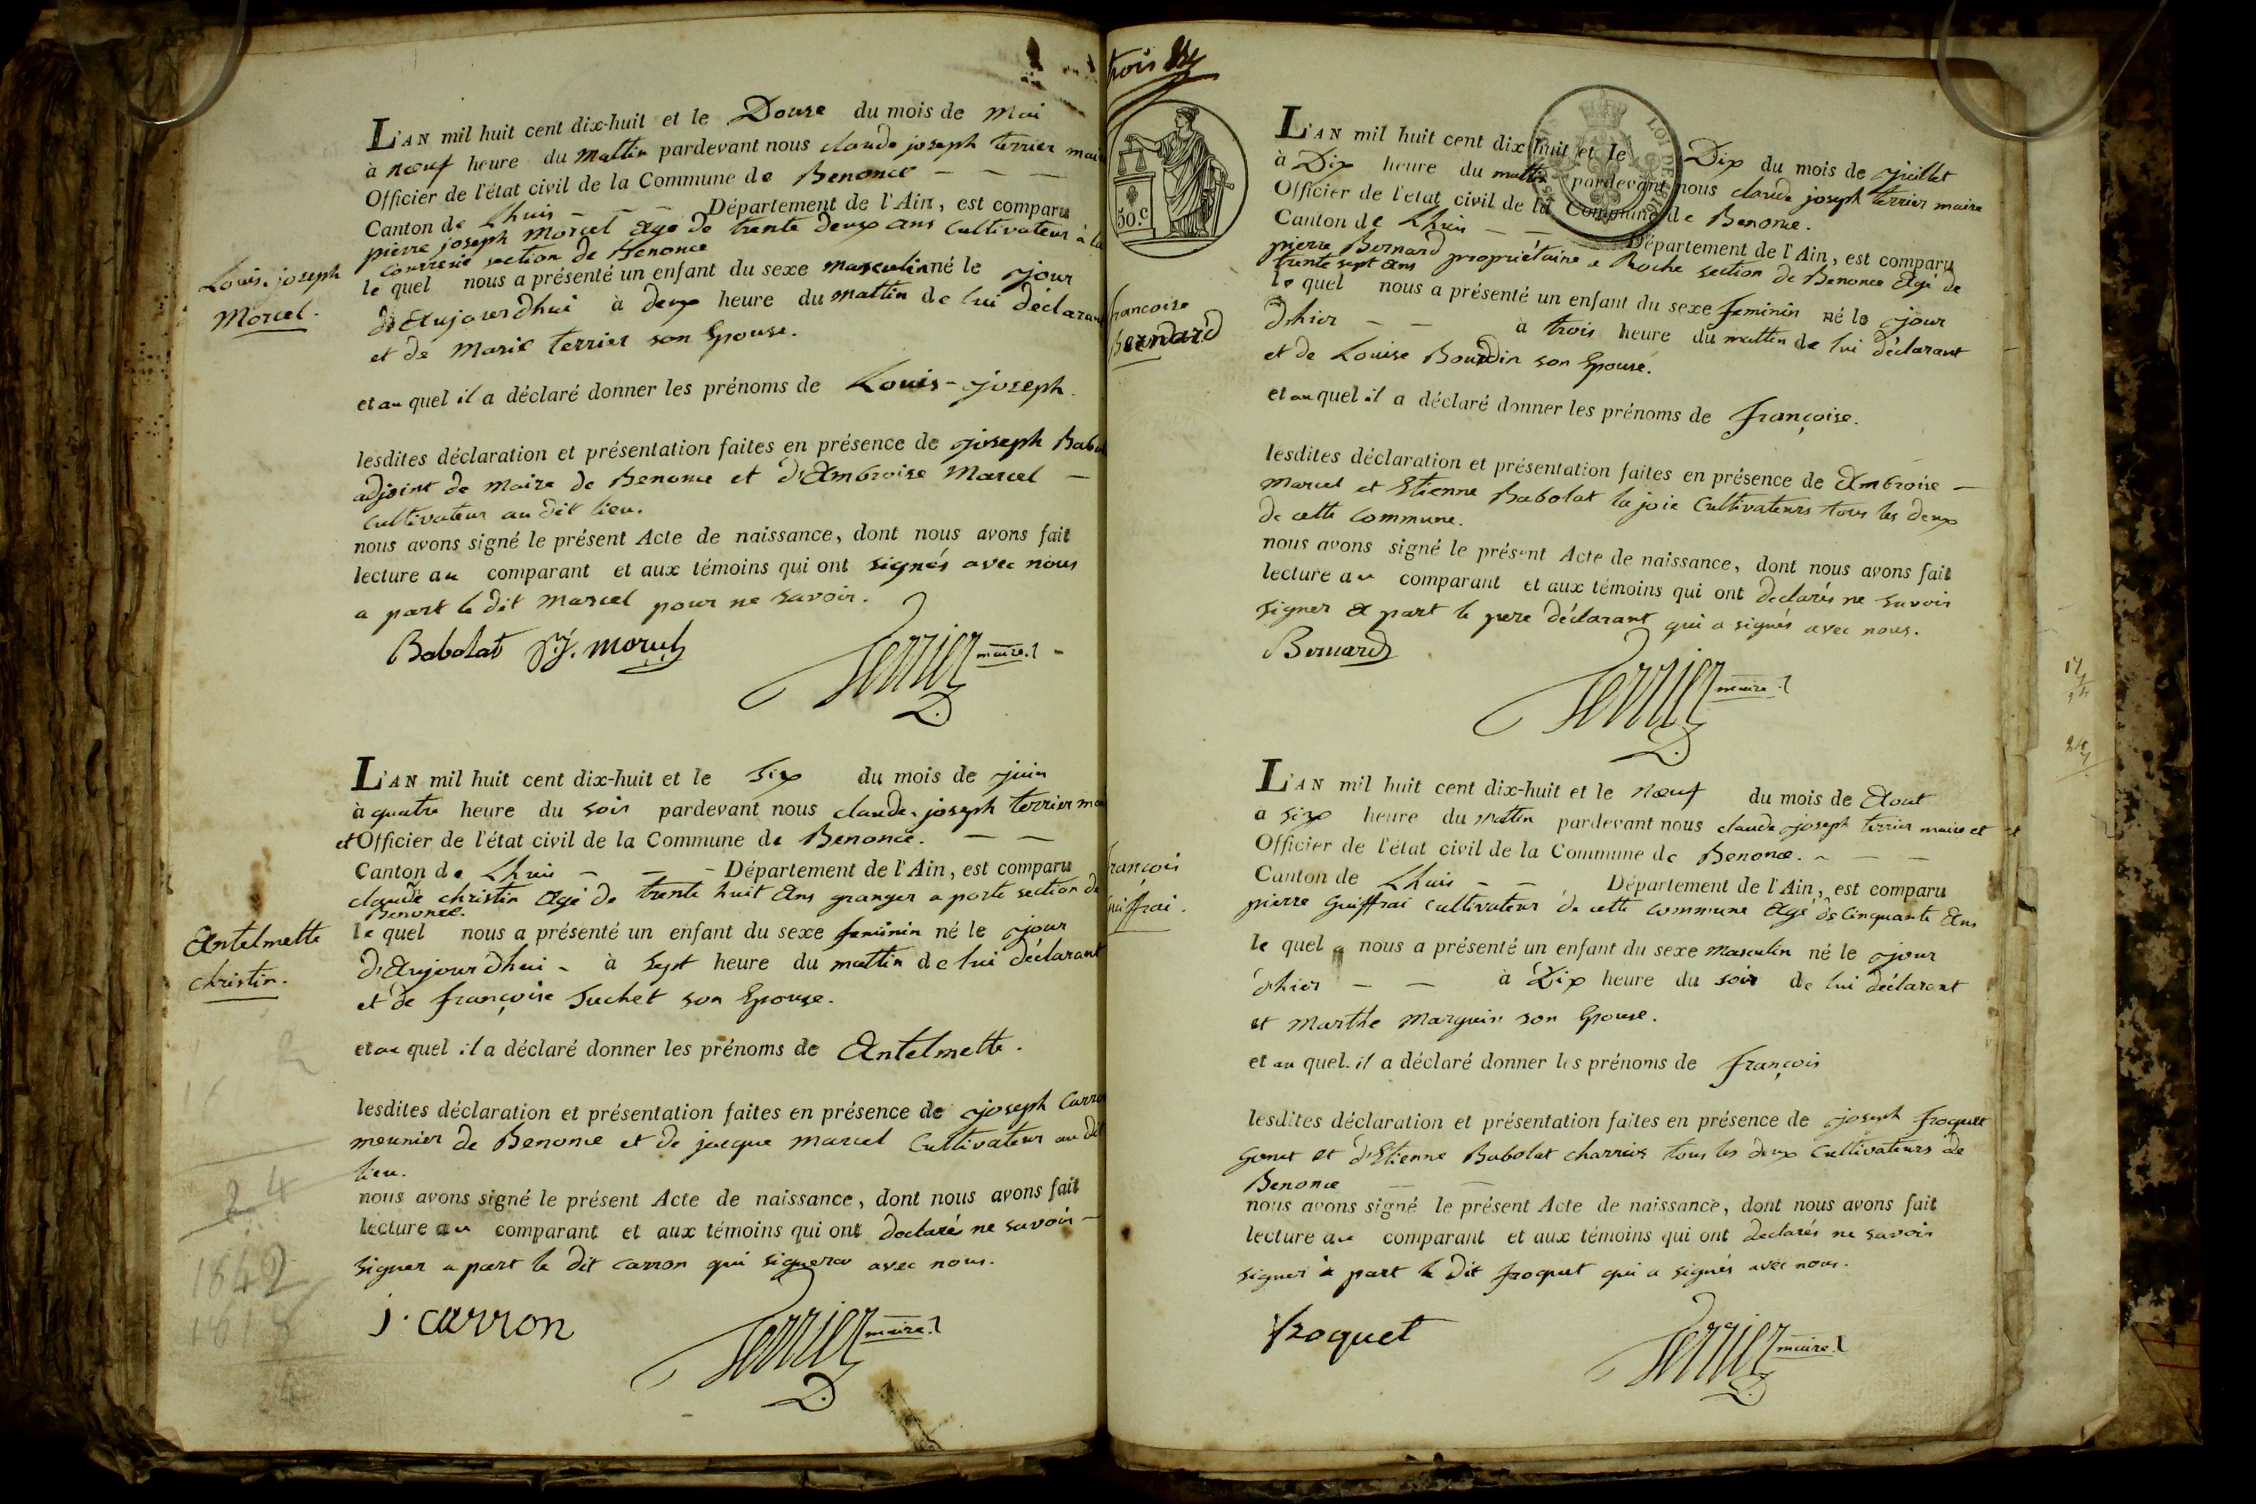 L'AN mil huit cent dix-huit et le Douse du mois de Mai
à nœuf heure du mattin pardevant nous claude joseph terrier mai
Officier de l'état civil de la Commune de Benonce
Canton de Lhuis Département de l'Ain, est comparu
pierre joseph Morcel Agé de trente deux ans Cultivateur à la
Courrerie section de Benonce
le quel nous a présenté un enfant du sexe masculin né le jour
d'Aujourdhui à deux heure du mattin de lui déclarant
et de Marie terrier son Epouse.
et au quel il a déclaré donner les prénoms de Louis-joseph.
lesdites déclaration et présentation faites en présence de joseph Babol
adjoint de Maire de Benonce et d'Ambroise Marcel
Cultivateur au dit lieu.
nous avons signé le présent Acte de naissance, dont nous avons fait
lecture au comparant et aux témoins qui ont signés avec nous
a part le dit Marcel pour ne savoir.
Babolat P.J. morcel Terrier maire.
Louis-joseph
Morcel.
L'AN mil huit cent dix-huit et le Six du mois de juin
à quatre heure du soir pardevant nous claude-joseph terrier mai
et Officier de l'état civil de la Commune de Benonce.
Canton de Lhuis Département de l'Ain, est comparu
claude christin Agé de trente huit Ans granger a porte section de
Benonce.
le quel nous a présenté un enfant du sexe feminin né le jour
d'Aujourdhui à sept heure du mattin de lui déclarant
et de françoise Suchet son Epouse.
et au quel il a déclaré donner les prénoms de Antelmette.
lesdites déclaration et présentation faites en présence de joseph Carron
meunier de Benonce et de jacque Marcel Cultivateur au dit
lieu.
nous avons signé le présent Acte de naissance, dont nous avons fait
lecture au comparant et aux témoins qui ont declarés ne savoir
signer a part le dit carron qui signera avec nous.
j. carron Terrier maire.
Antelmette
christin.
24
1842
1818
24
trois
50.c
L'AN mil huit cent dix-huit et le Dix du mois de juillet
à Dix heure du mattin pardevant nous claude joseph terrier maire
Officier de l'état civil de la Commune de Benonce.
Canton de Lhuis Département de l'Ain, est comparu
pierre Bernard propriétaire a Roche section de Benonce Agé de
trente sept Ans
le quel nous a présenté un enfant du sexe feminin né le jour
d'hier à trois heure du mattin de lui déclarant
et de Louise Bourdin son Epouse.
et au quel il a déclaré donner les prénoms de françoise.
lesdites déclaration et présentation faites en présence de Ambroise
Marcel et Etienne Babolat la joie Cultivateurs tous les deux
de cette Commune.
nous avons signé le présent Acte de naissance, dont nous avons fait
lecture au comparant et aux témoins qui ont declarés ne savoir
signer A part le pere déclarant qui a signés avec nous.
Bernard Terrier maire.
francoise
Bernard
L'AN mil huit cent dix-huit et le Nœuf du mois de Aout
à six heure du mattin pardevant nous claude joseph terrier maire et
Officier de l'état civil de la Commune de Benonce.
Canton de Lhuis Département de l'Ain, est comparu
pierre Guiffrai Cultivateur de cette Commune Agé de Cinquante Ans
le quel nous a présenté un enfant du sexe Masculin né le jour
d'hier à Dix heure du soir de lui déclarant
et Marthe Marguin son Epouse.
et au quel il a déclaré donner les prénoms de françois
lesdites déclaration et présentation faites en présence de joseph froquet
Gonet et d'Etienne Babolat charrier tous les deux Cultivateurs de
Benonce
nous avons signé le présent Acte de naissance, dont nous avons fait
lecture au comparant et aux témoins qui ont declarés ne savoir
signer à part le dit froquet qui a signés avec nous.
froquet Terrier maire.
françois
Guiffrai.